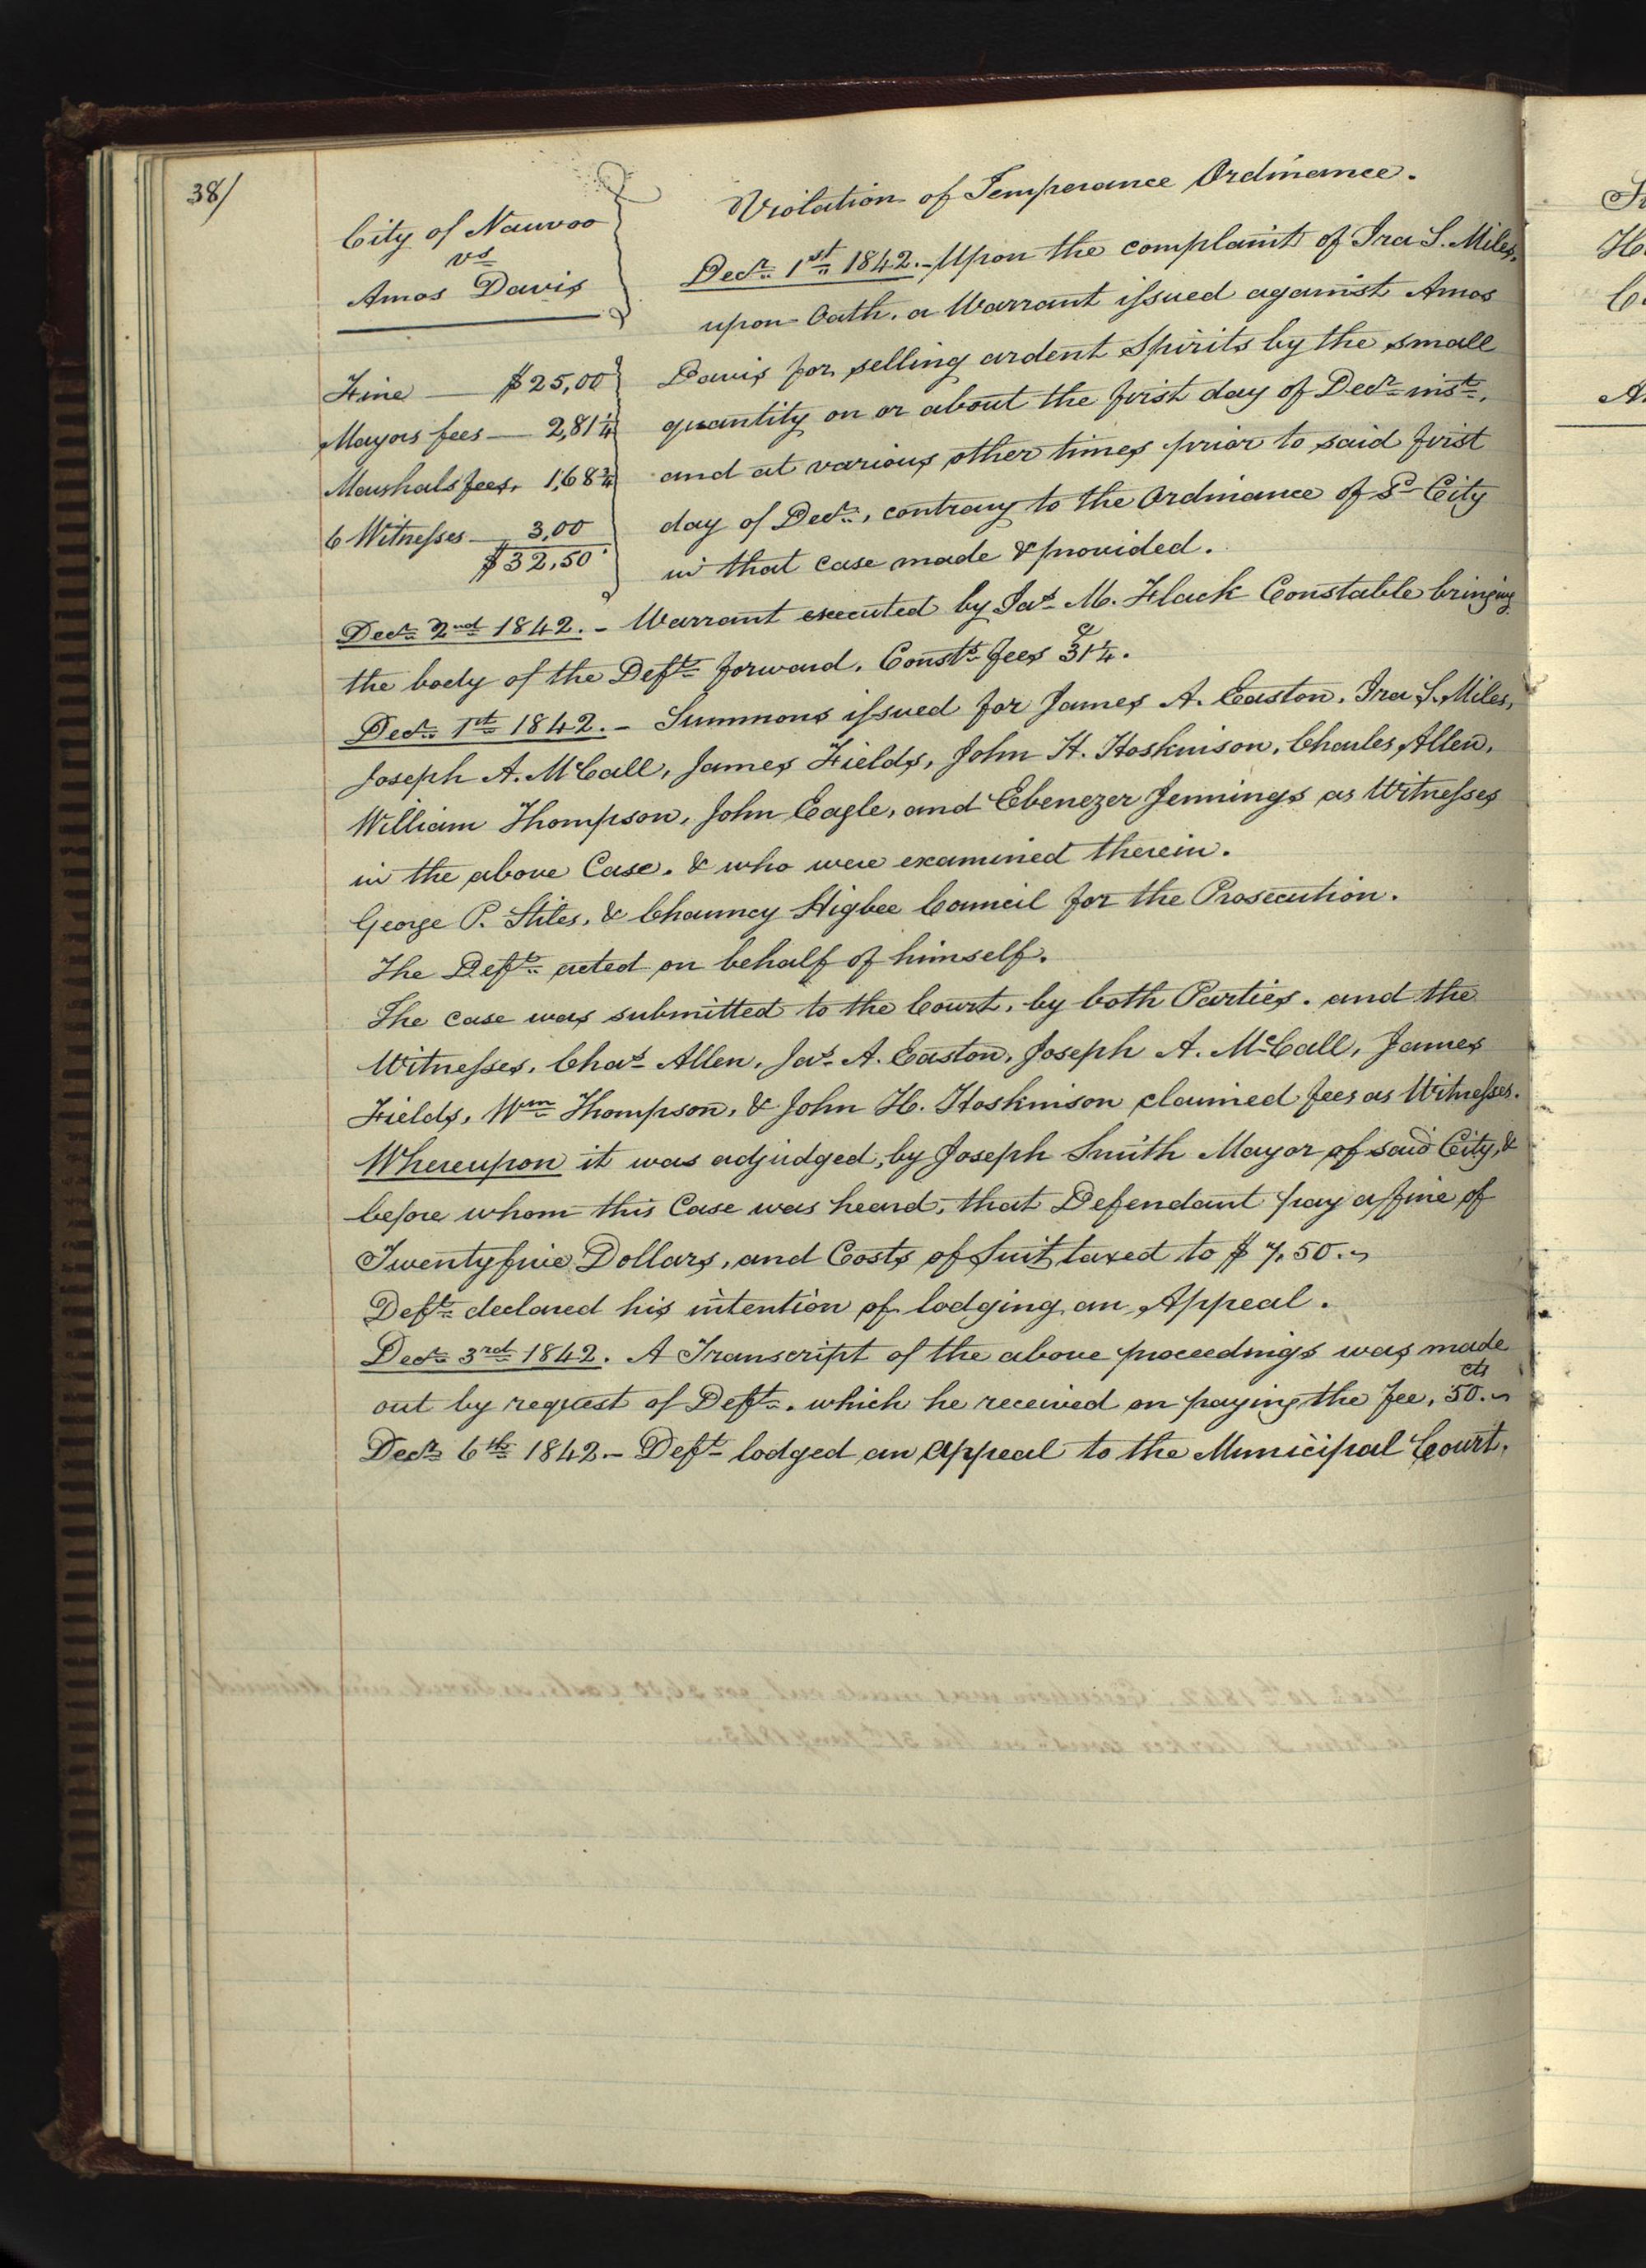 38/
City of Nauvoo
vs
Amos Davis
Fine — $25,00
Mayors fees — 2,81¼
Marshals fees, 1,68¾
6 Witnesses — 3,00
$32,50
Violation of Temperance Ordinance.
Decr. 1st. 1842.- Upon the complaint of Ira S. Miles,
upon Oath, a Warrant issued against Amos
Davis for selling ardent Spirits by the small
quantity on or about the first day of Decr. inst.,
and at various other times prior to said first
day of Decr., contrary to the Ordinance of Sd City
in that case made & provided.
Decr. 2nd 1842.- Warrant executed by Jas. M. Flack Constable bringing
the body of the Deft. forward. Consts. fees 31¼ c.
Decr. 1st 1842.- Summons issued for James A. Easton, Ira S. Miles,
Joseph A. McCall, James Fields, John H. Hoskinson, Charles Allen,
William Thompson, John Eagle, and Ebenezer Jennings as Witnesses
in the above Case. & who were examined therein.
George P. Stiles, & Chauncy Higbee Council for the Prosecution.
The Deft. acted on behalf of himself.
The case was submitted to the Court, by both Parties. and the
Witnesses, Chas. Allen, Jas. A. Easton, Joseph A. McCall, James
Fields, Wm. Thompson, & John H. Hoskinson claimed fees as Witnesses.
Whereupon it was adjudged, by Joseph Smith Mayor of said City, &
before whom this Case was heard, that Defendant pay a fine of
Twentyfive Dollars, and Costs of Suit taxed to $7,50.~
Deft. declared his intention of lodging an Appeal.
Decr. 3rd 1842. A Transcript of the above proceedings was made
out by request of Deft. which he received on paying the fee, 50 cts.~
Decr 6th 1842.- Deft. lodged an Appeal to the Municipal Court.